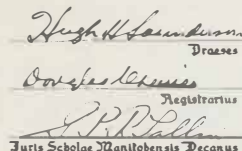 Hugh H Saunderson
Praeses
Douglas Chevrier
Registrarius
G. P. R. Tallin
Juris Scholae Manitobensis Decanus